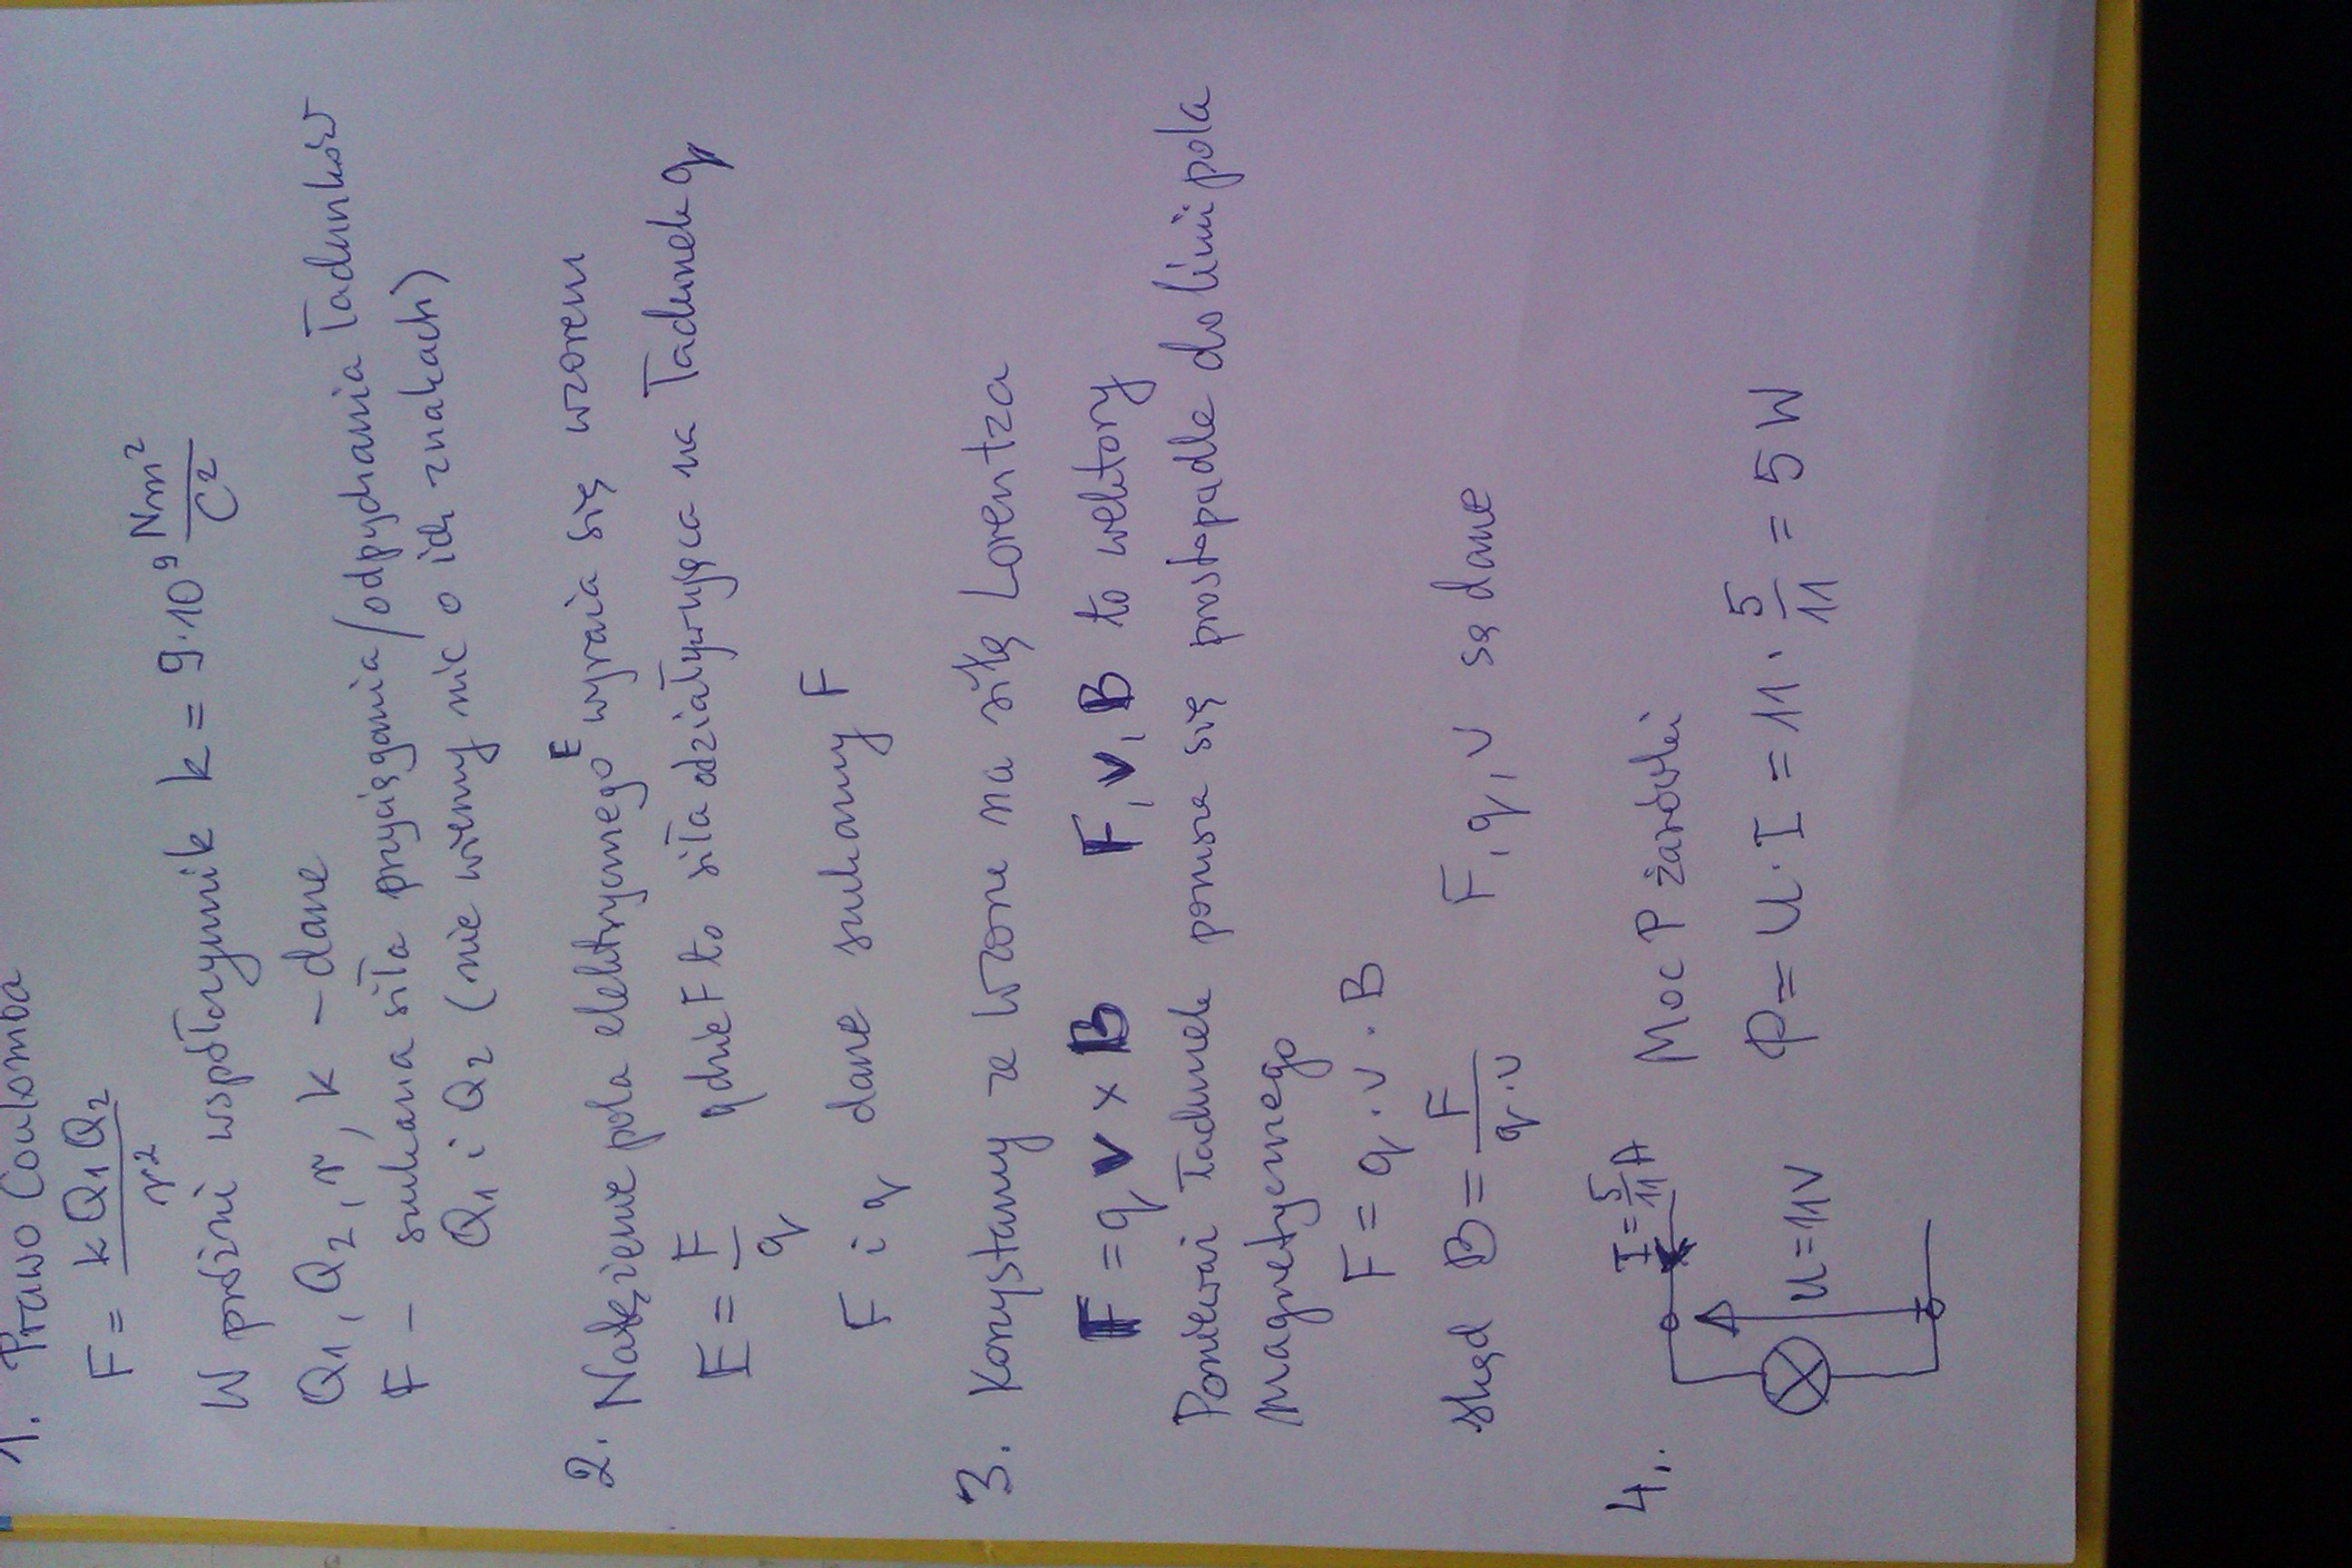 1. Prawo Coulomba
F = k Q1 Q2 / r²
W próżni współczynnik k = 9·10⁹ Nm²/C²
Q1, Q2, r, k - dane
F - szukana siła przyciągania/odpychania ładunków
Q1 i Q2 (nie wiemy nic o ich znakach)
2. Natężenie pola elektrycznego E wyraża się wzorem
E = F/q gdzie F to siła odziaływująca na ładunek q
F i q dane szukamy F
3. Korzystamy ze wzoru na siłę Lorentza
F = q v × B F, v, B to wektory
Ponieważ ładunek porusza się prostopadle do linii pola
magnetycznego
F = q · v · B
skąd B = F/(q·v) F, q, v są dane
4.
I = 5/11 A
U = 11V
Moc P żarówki
P = U · I = 11 · 5/11 = 5 W